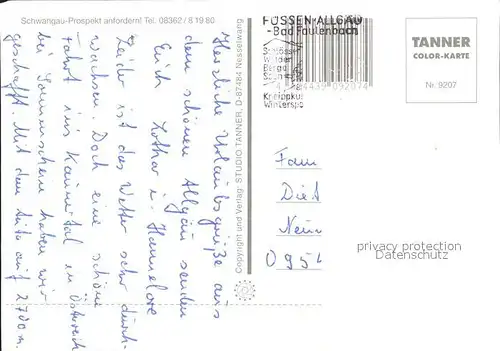 Schwangau-Prospekt anfordern! Tel. 08362 / 8 19 80
Herzliche Urlaubsgrüße aus
dem schönen Allgäu senden
Euch Lothar u. Hannelore
Leider ist das Wetter sehr durch-
wachsen. Doch eine schöne
Fahrt ins Kaunertal in Österreich
bei Sonnenschein haben wir
geschafft. Mit dem Auto auf 2700 m.
Copyright und Verlag: STUDIO TANNER, D-87484 Nesselwang
FÜSSEN-ALLGÄU
-Bad Faulenbach
Schlösser
Wälder
Berge
Kneippkur
Winterspo
4439 092074
TANNER
COLOR-KARTE
Nr. 9207
Fam
Diet
0954
privacy protection
Datenschutz